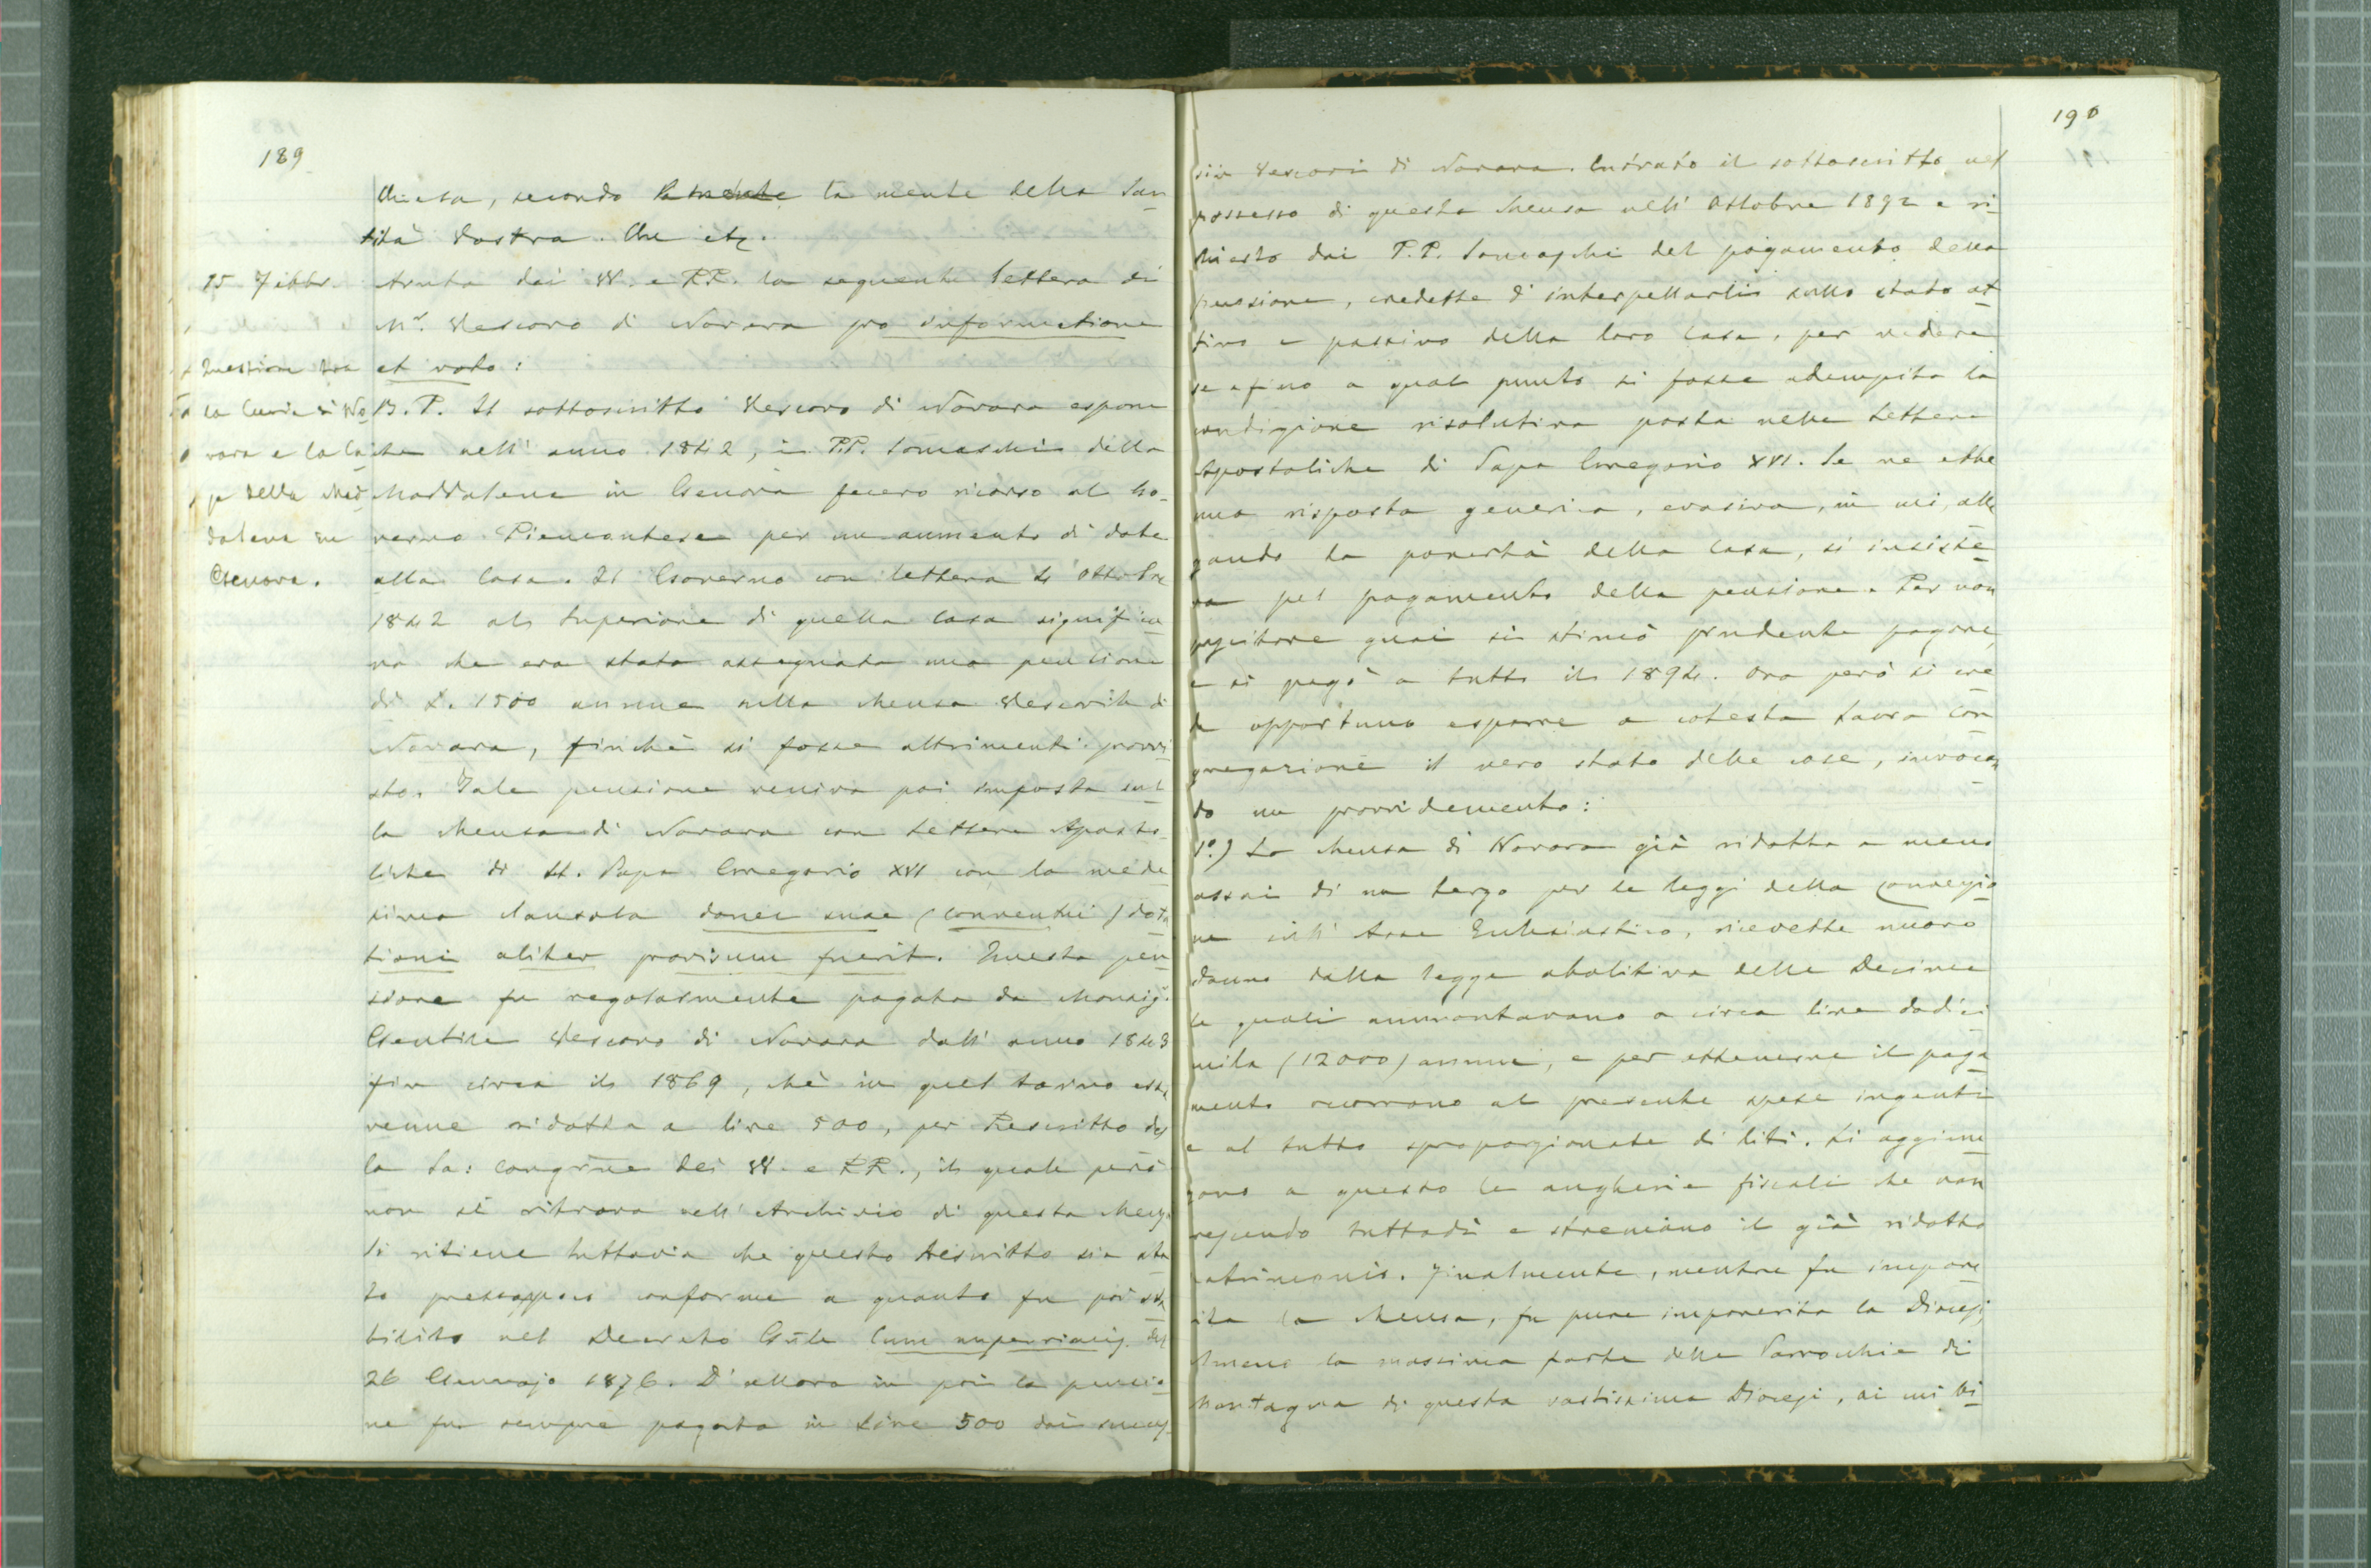 189
Chiesa, secondo la mente la mente della San-
tità Vostra. Che etc.
15 7ibbr. Avuta dai VV. e RR. la seguente lettera di
Mr. Vescovo di Novara pro informatione
Questione tra et voto:
la Curia di No- B. P. Il sottoscritto Vescovo di Novara espone
vara e la Ca- che nell' anno 1842, i PP. Somaschi della
sa della Mad- Maddalena in Genova fecero ricorso al Go-
dalena in verno Piemontese per un aumento di dote
Genova. alla Casa. Il Governo con lettera 4 Ottobre
1842 al Superiore di quella Casa significa-
va che era stata assegnata una pensione
di L. 1500 annue sulla Mensa Vescovile di
Novara, finchè si fosse altrimenti provvi-
sto. Tale pensione veniva poi imposta sul-
la Mensa di Novara con Lettere Aposto-
liche di Papa Gregorio XVI con la mede-
sima clausola donec suae (conventui) dota
tioni aliter provisum fuerit. Questa pen-
sione fu regolarmente pagata da Monsig.
Gentile Vescovo di Novara dall' anno 1843
fin circa il 1869, chè in quel torno essa
venne ridotta a lire 500, per Rescritto del
la Sa: Congrne dei VV. e RR., il quale però
non si ritrova nell' Archivio di questa Mensa.
Si ritiene tuttavia che questo Rescritto sia sta-
to pressappoco conforme a quanto fu poi sta-
bilito nel Decreto Gnle Cum nuperrimis del
26 Gennajo 1876. D' allora in poi la pensio-
ne fu sempre pagata in Lire 500 dai succes-
190
sivi Vescovi di Novara. Entrato il sottoscritto nel
possesso di questa Mensa nell' Ottobre 1892 e ri-
chiesto dai P.P. Somaschi del pagamento della
pensione, credette d' interpellarli sullo stato at-
tivo e passivo della loro Casa, per vedere
se e fino a qual punto si fosse adempita la
condizione risolutiva posta nelle Lettere
Apostoliche di Papa Gregorio XVI. Se ne ebbe
una risposta generica, evasiva, in cui, alle
gando la povertà della Casa, si insiste-
va pel pagamento della pensione. Per non
suscitare guai si stimò prudente pagare,
e si pagò a tutto il 1894. Ora però si cre-
de opportuno esporre a cotesta Sacra Con-
gregazione il vero stato delle cose, invocan
do un provvidemento:
1°.) La Mensa di Novara già ridotta a meno
assai di un terzo per le leggi della conversio-
ne sull' Asse Ecclesiastico, ricevette nuovo
danno dalla legge abolitiva delle Decime
le quali ammontavano a circa lire dodici
mila (12000) annue, e per ottenerne il paga-
mento occorrono al presente spese ingenti
e al tutto sproporzionate di liti. Si aggiun-
gono a questo le angherie fiscali che van
crescendo tuttodì e stremano il già ridotto
patrimonio. Finalmente, mentre fu impove-
rita la Mensa, fu pure impoverita la Diocesi,
almeno la massima parte delle Parrocchie di
Montagna di questa vastissima Diocesi, ai cui bi-